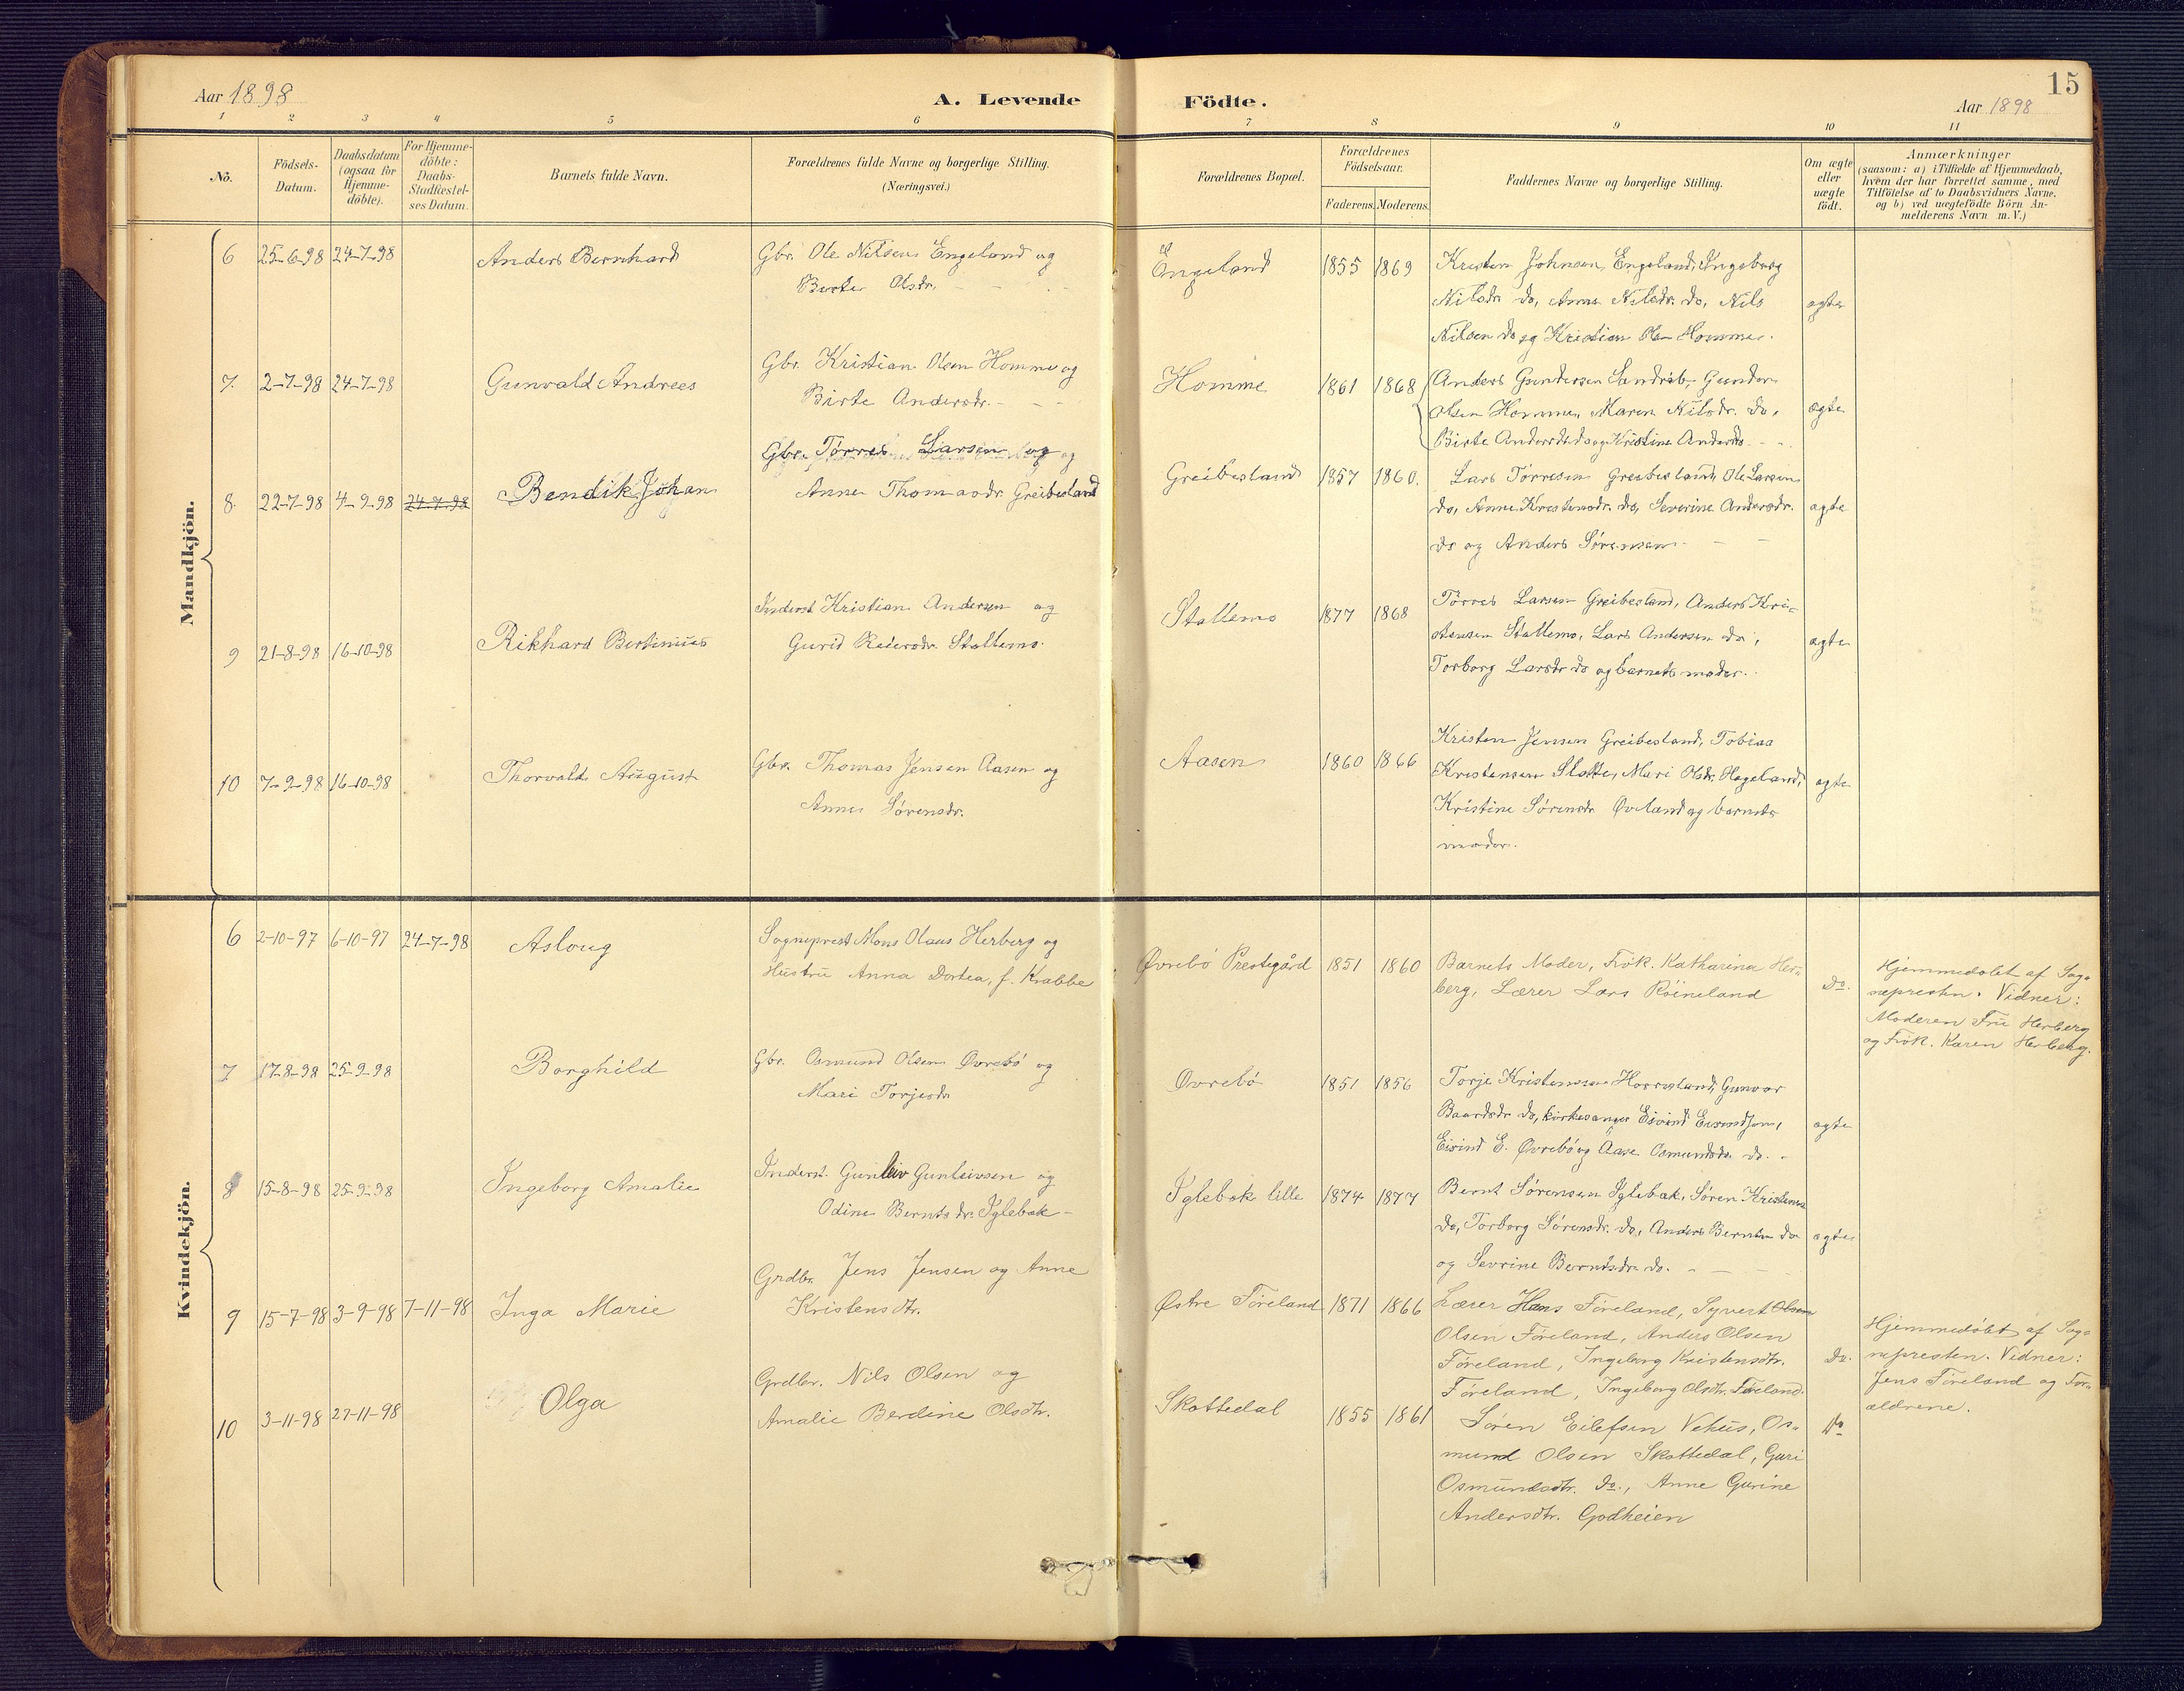 15
Aar 1898
A. Levende
Födte.
Aar 1898
1 2 3 4 5 6 7 8 9 10 11
No.
Födsels-
Datum.
Daabsdatum
(ogsaa for
Hjemme-
döbte).
For Hjemme-
döbte:
Daabs-
Stadfæstel-
ses Datum.
Barnets fulde Navn.
Forældrenes fulde Navne og borgerlige Stilling.
(Næringsvei.)
Forældrenes Bopæl.
Forældrenes
Födselsaar.
Faderens. Moderens.
Faddernes Navne og borgerlige Stilling.
Om ægte
eller
uægte
födt.
Anmærkninger
(saasom: a) i Tilfælde af Hjemmedaab,
hvem der har forrettet samme, med
Tilföielse af to Daabsvidners Navne.
og b) ved uægtefödte Börn An-
melderens Navn m. V.)
Mandkjön.
6 25-6-98 24-7-98
Anders Bernhard
Gbr. Ole Nilsen Engeland og
Berte Olsdr. - -
Engeland
1855 1869
Kristen Johnsen Engeland, Ingeborg
Nilsdr do, Anne Nilsdr. do, Nils
Nilsen do og Kristian Olsen Homme.
ægte
7. 2-7-98 24-7-98
Gunvald Andreas
Gbr. Kristian Olsen Homme og
Birte Andersdr. - -
Homme
1861 1868
Anders Gundersen Gunder
Olsen Homme, Maren Nilsdr. do,
Birte Andersdr do og Kristine Andersdr - -
ægte
8. 22-7-98 4-9-98 24-7-98
Bendik Johan
Gbr. Tørres Larsen og og
Anne Thomasdr. Greibesland
Greibesland
1857 1860.
Lars Tørresen Greibesland, Ole Larsen
do, Anne Kristensdr. do, Severine Andersdr.
do og Anders Sørensen - -
ægte
9 21-8-98 16-10-98
Rikhard Bertinius
Inderst Kristian Andersen og
Gurid Reiersdr. Stallemo.
Stallemo
1877 1868
Tørres Larsen Greibesland, Anders Kri-
stensen Stallemo, Lars Andersen do,
Torborg Larsdr do og barnets moder.
ægte
10 7-9-98 16-10-98
Thorvald August
Gbr. Thomas Jensen Aasen og
Anne Sørensdr.
Aasen
1860 1866
Kristen Jensen Greibesland, Tobias
Kristensen Slotte, Mari Olsdr. Hageland,
Kristine Sørensdr. Øvland og barnets
moder.
ægte
Kvindekjön.
6 2-10-97 6-10-97 24-7-98
Aslaug
Sogneprest Mons Olaus Herberg og
Hustru Anna Dortea, f. Krabbe
Øvrebö Prestegård
1851 1860
Barnets Moder, Frök. Katharina Her-
berg, Lærer Lars Röineland
Do.
Hjemmedöbt af Sog-
nepresten. Vidner:
Moderen Fru Herberg
og Frök. Karen Herberg.
7 17-8-98 25-9-98
Borghild
Gbr. Osmund Olsen Øvrebö og
Mari Torjesdr
Øvrebö
1851 1856
Torje Kristensen Horrisland, Gunvor
Baardsdr do, kirkesanger Eivind Eivindsen,
Eivind E. Øvrebö og Aase Osmundsdr. do. -
ægte
8 15-8-98 25-9-98
Ingeborg Amalie
Inderst. Gunleiv Gunleivsen og
Odine Berntsdr. Iglebæk -
Iglebæk lille
1874 1877
Bernt Sørensen Iglebæk, Søren Kristensen
do, Torborg Sørensdr. do, Anders Berntsen do
og Sevrine Berntsdr. do. - -
ægte
9 15-7-98 3-9-98 7-11-98
Inga Marie
Grdbr. Jens Jensen og Anne
Kristensdtr.
Østre Föreland
1871 1866
Lærer Hans Föreland, Syvert Olsen
Olsen Föreland, Anders Olsen
Föreland, Ingeborg Kristensdtr.
Föreland, Ingeborg Olsdtr. Föreland.
Do.
Hjemmedöbt af Sog-
nepresten. Vidner:
Jens Föreland og For-
ældrene.
10 3-11-98 27-11-98
Olga
Grdbr. Nils Olsen og
Amalie Berdine Olsdtr.
Skottedal
1855 1861
Sören Eilefsen Vehus, Os-
mund Olsen Skottedal, Guri
Osmundsdtr. Do., Anne Gurine
Andersdtr. Godheien
Do